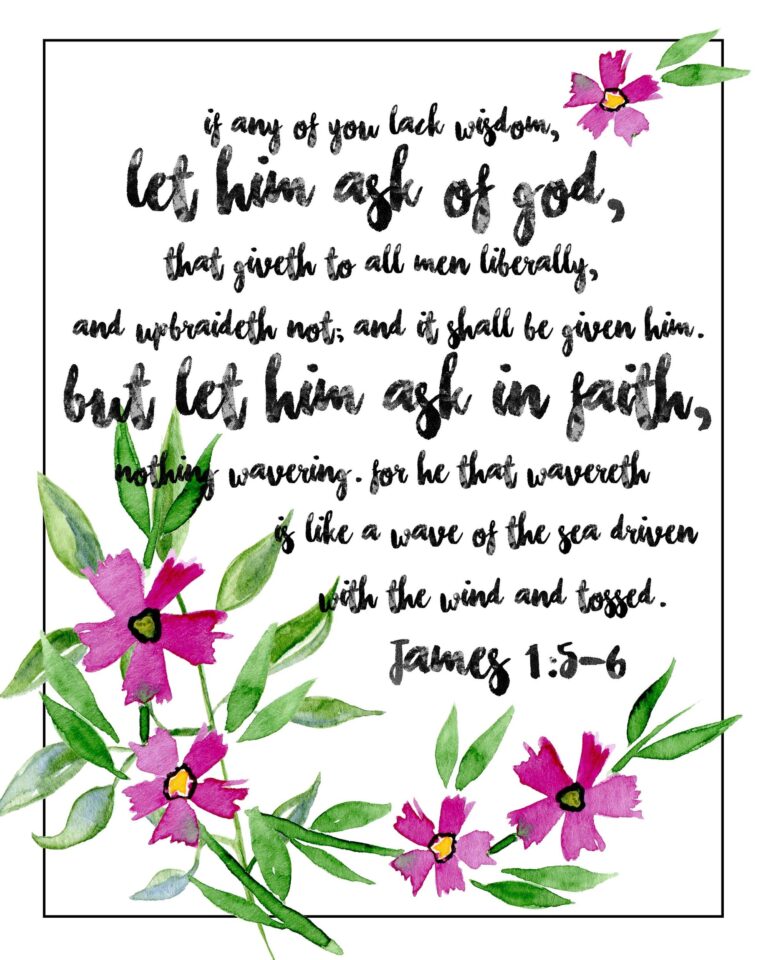 if any of you lack wisdom,
let him ask of god,
that giveth to all men liberally,
and upbraideth not; and it shall be given him.
but let him ask in faith,
nothing wavering. for he that wavereth
is like a wave of the sea driven
with the wind and tossed.
James 1:5-6